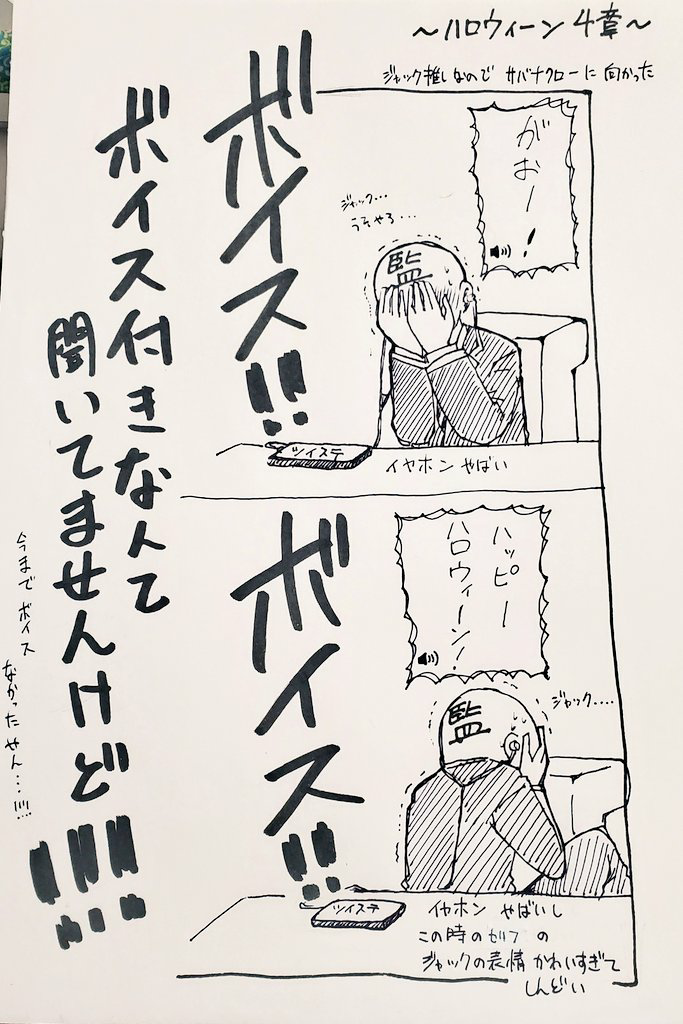 ～ハロウィーン4章～
ジャック推しなので サバナクローに 向かった
がおー！
ジャック…
うそやろ…
監
ボイス!!
ツイステ
イヤホン やばい
ハッピー
ハロウィーン！
ジャック....
監
ボイス!!
ツイステ
イヤホン やばいし
この時のセリフ の
ジャックの表情 かわいすぎて
しんどい
ボイス付きなんて
聞いてませんけど!!!
今まで ボイス
なかったせん…!!!